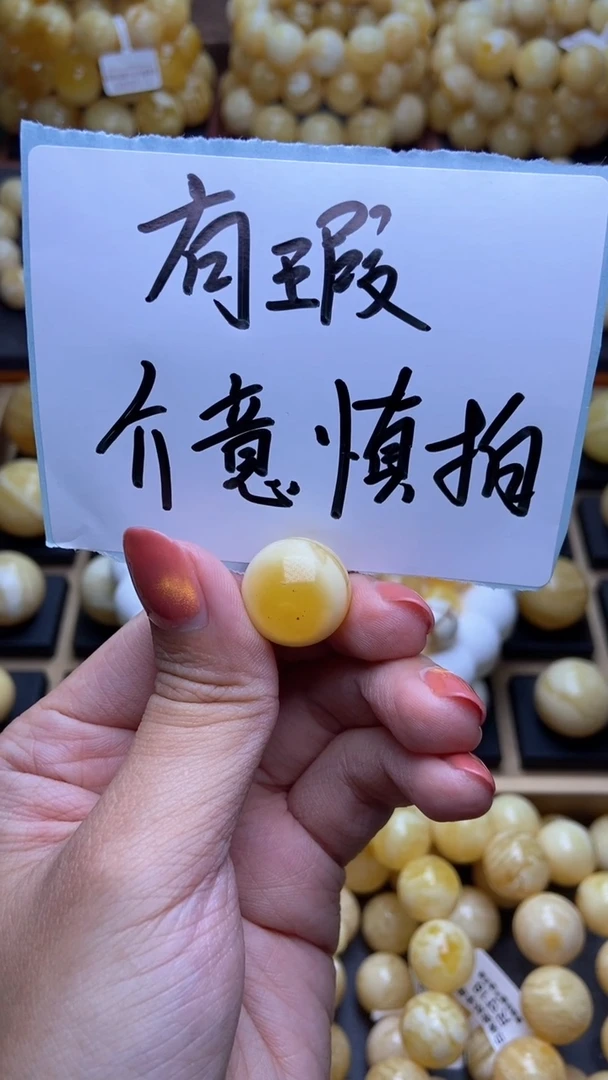 有瑕
介意慎拍